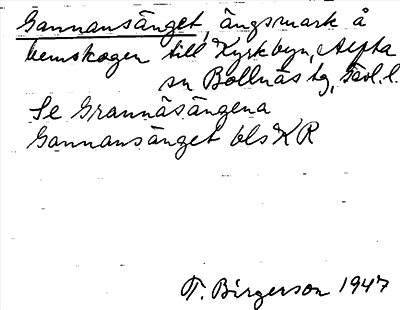 Gannansänget, ängsmark å
hemskogen till Kyrkbyn, Alfta
sn Bollnäs tg, Gävl. l.
Se Grannäsängena
Gannansänget bls KR
T. Birgerson 1947